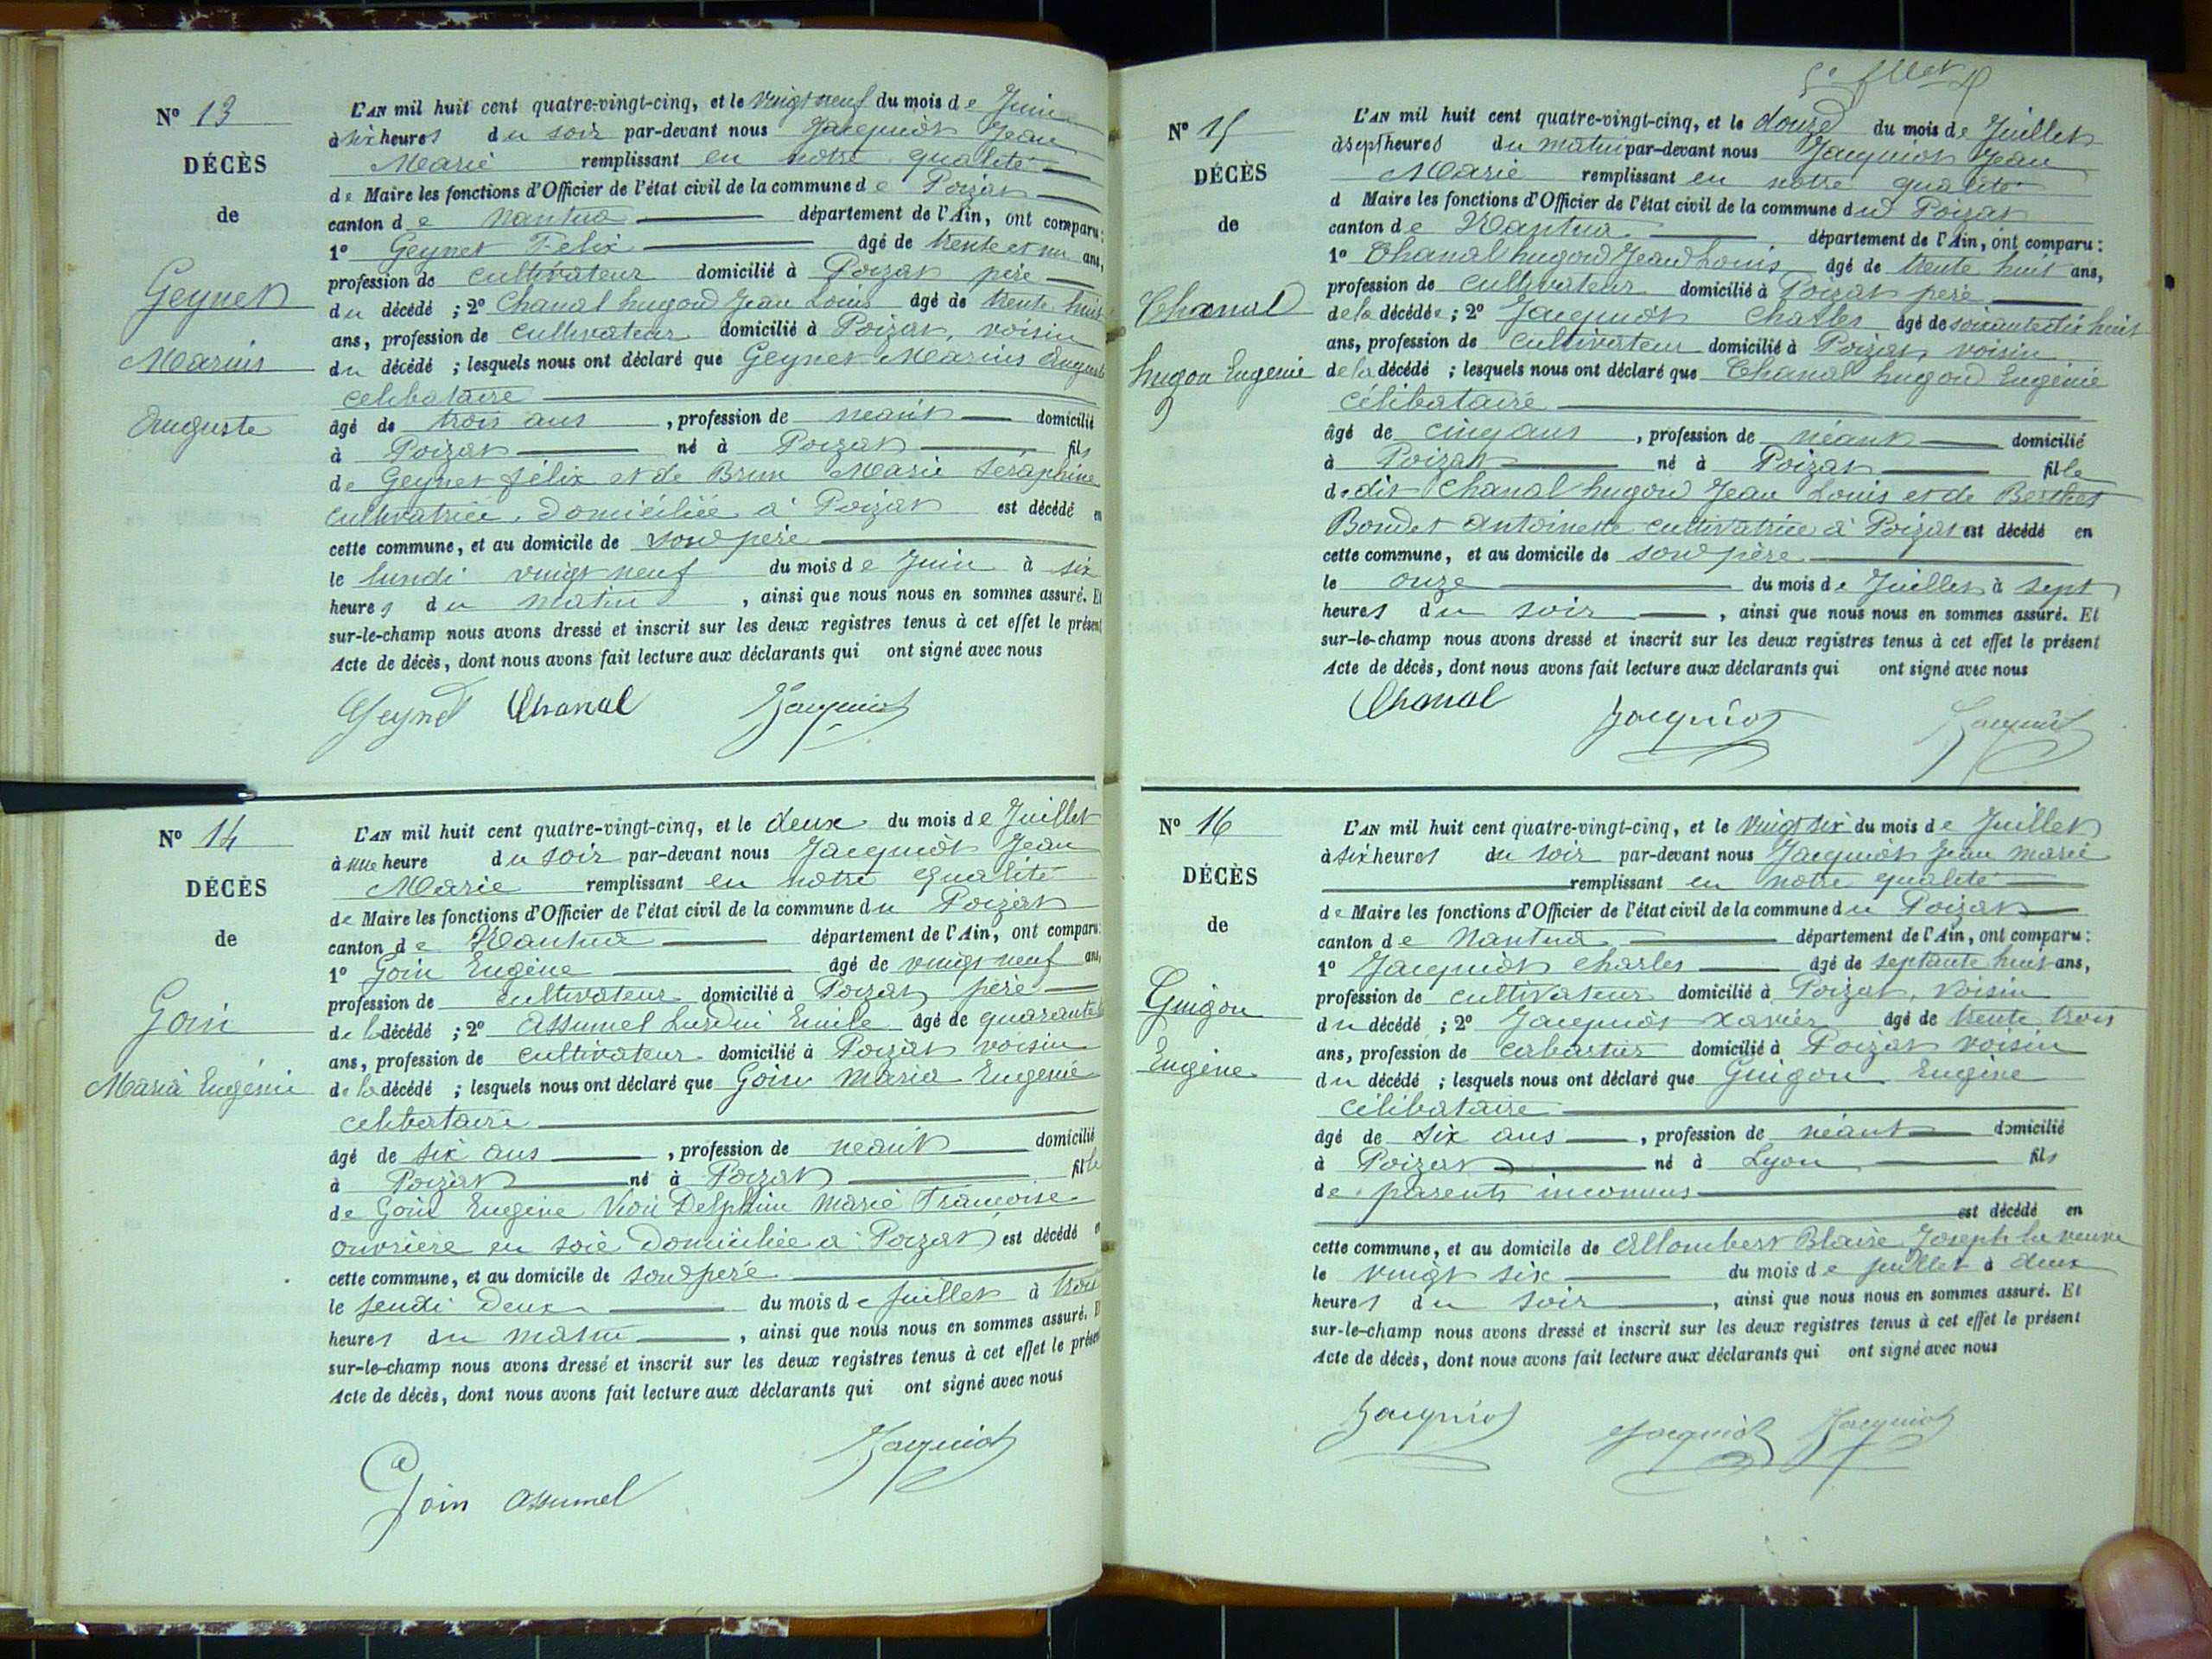 N° 13
DÉCÈS
de
Geynet
Marius
Auguste
L'AN mil huit cent quatre-vingt-cinq, et le vingt neuf du mois de Juin
à six heures du soir par-devant nous Jacquiot Jean
Marie remplissant en notre qualité
de Maire les fonctions d'Officier de l'état civil de la commune de Poizat
canton de Nantua département de l'Ain, ont comparu :
1° Geynet Felix âgé de trente et un ans,
profession de cultivateur domicilié à Poizat père
du décédé ; 2° Chanal hugon Jean Louis âgé de trente huit
ans, profession de cultivateur domicilié à Poizat, voisin
du décédé ; lesquels nous ont déclaré que Geynet Marius Auguste
celibataire
âgé de trois ans , profession de neant domicilié
à Poizat né à Poizat fils
de Geynet félix et de Brun Marie Séraphine
cultivatrice, domiciliée à Poizat est décédé en
cette commune, et au domicile de son père
le lundi vingt neuf du mois de Juin à six
heures du matin , ainsi que nous nous en sommes assuré. Et
sur-le-champ nous avons dressé et inscrit sur les deux registres tenus à cet effet le présent
Acte de décès, dont nous avons fait lecture aux déclarants qui ont signé avec nous
Geynet Chanal Jacquiot
N° 14
DÉCÈS
de
Goin
Maria Eugénie
L'AN mil huit cent quatre-vingt-cinq, et le deux du mois de Juillet
à une heure du soir par-devant nous Jacquiot Jean
Marie remplissant en notre qualité
de Maire les fonctions d'Officier de l'état civil de la commune du Poizat
canton de Nantua département de l'Ain, ont comparu :
1° Goin Eugène âgé de vingt neuf ans,
profession de cultivateur domicilié à Poizat père
de la décédé ; 2° Assumel Lurdin Emile âgé de quarante
ans, profession de cultivateur domicilié à Poizat voisin
de la décédé ; lesquels nous ont déclaré que Goin Maria Eugenie
celibataire
âgé de six ans , profession de neant domicilié
à Poizat né à Poizat fille
de Goin Eugène Delphine Marie Françoise
ouvrière en soie domiciliée à Poizat est décédé en
cette commune, et au domicile de son père
le Jeudi Deux du mois de Juillet à trois
heures du matin , ainsi que nous nous en sommes assuré. Et
sur-le-champ nous avons dressé et inscrit sur les deux registres tenus à cet effet le présent
Acte de décès, dont nous avons fait lecture aux déclarants qui ont signé avec nous
Goin Assumel Jacquiot
N° 15
DÉCÈS
de
Chanal
hugon Eugénie
L'AN mil huit cent quatre-vingt-cinq, et le douze du mois de Juillet
à sept heures du matin par-devant nous Jacquiot Jean
Marie remplissant en notre qualité
d Maire les fonctions d'Officier de l'état civil de la commune du Poizat
canton de Nantua département de l'Ain, ont comparu :
1° Chanal hugon Jean Louis âgé de trente huit ans,
profession de cultivateur domicilié à Poizat père
de la décédée ; 2° Jacquiot Charles âgé de soixante dix huit
ans, profession de cultivateur domicilié à Poizat, voisin
de la décédé ; lesquels nous ont déclaré que Chanal hugon Eugénie
célibataire
âgé de cinq ans , profession de néant domicilié
à Poizat né à Poizat fille
de dit Chanal hugon Jean Louis et de Berthet
Bondet Antoinette cultivatrice à Poizat est décédé en
cette commune, et au domicile de son père
le onze du mois de Juillet à sept
heures du soir , ainsi que nous nous en sommes assuré. Et
sur-le-champ nous avons dressé et inscrit sur les deux registres tenus à cet effet le présent
Acte de décès, dont nous avons fait lecture aux déclarants qui ont signé avec nous
Chanal Jacquiot Jacquiot
N° 16
DÉCÈS
de
Guigon
Eugène
L'AN mil huit cent quatre-vingt-cinq, et le vingt six du mois de Juillet
à six heures du soir par-devant nous Jacquiot Jean Marie
remplissant en notre qualité
de Maire les fonctions d'Officier de l'état civil de la commune du Poizat
canton de Nantua département de l'Ain, ont comparu :
1° Jacquiot Charles âgé de septante huit ans,
profession de cultivateur domicilié à Poizat, voisin
du décédé ; 2° Jacquiot Xavier âgé de trente trois
ans, profession de domicilié à Poizat voisin
du décédé ; lesquels nous ont déclaré que Guigon Eugène
célibataire
âgé de six ans , profession de néant domicilié
à Poizat né à Lyon fils
de parents inconnus
est décédé en
cette commune, et au domicile de Allombert Blaise Joseph la veuve
le vingt six du mois de juillet à deux
heures du soir , ainsi que nous nous en sommes assuré. Et
sur-le-champ nous avons dressé et inscrit sur les deux registres tenus à cet effet le présent
Acte de décès, dont nous avons fait lecture aux déclarants qui ont signé avec nous
Jacquiot Jacquiot Jacquiot